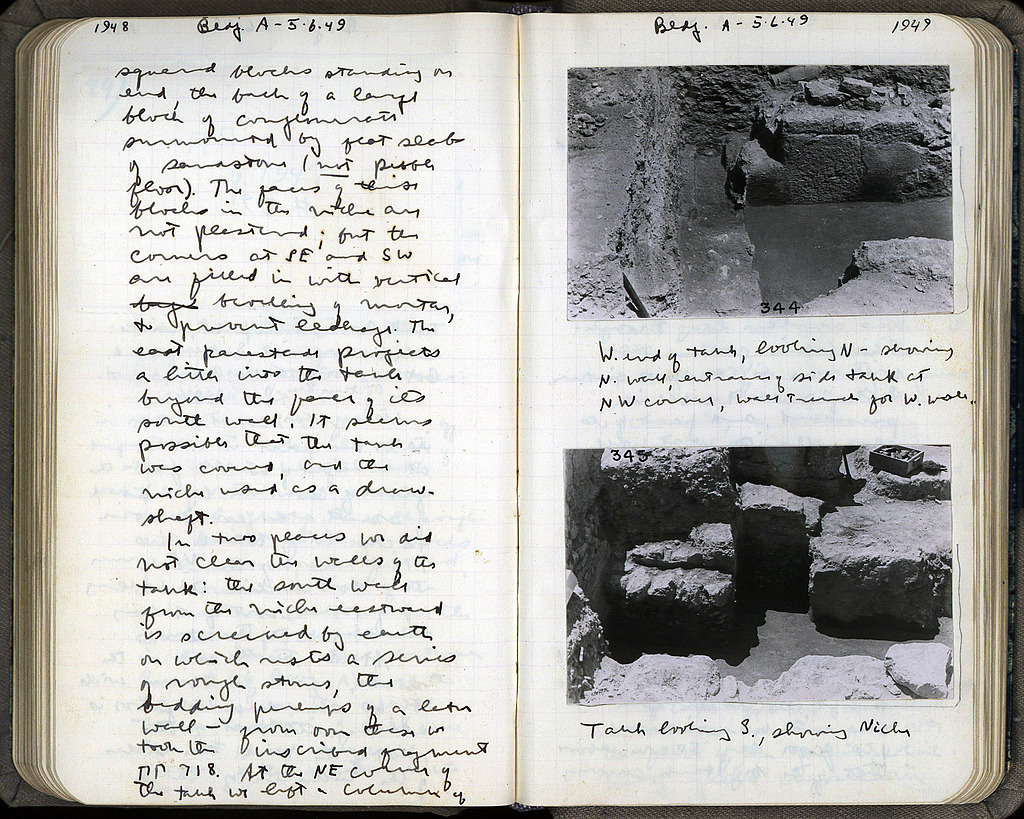 1948 Bldg. A - 5.6.49
squared blocks standing on
end, the back of a large
block of conglomerate
surmounted by flat slab
of sandstone (not pebble
floor). The faces of these
blocks in the niche are
not plastered; but the
corners at SE and SW
are filled in with vertical
beading of mortar,
to prevent leakage. The
east parastade projects
a little into the tank
beyond the face of its
south wall. It seems
possible that the tank
was covered, and the
niche used as a draw-
shaft.
In two places we did
not clear the walls of the
tank: the south wall
from the niche eastward
is screened by earth
on which rests a series
of rough stones, the
bedding perhaps of a later
wall - from over these we
took the inscribed fragment
718. At the NE corner of
the tank we left a column of
Bldg. A - 5.6.49 1949
344
W. end of tank, looking N - showing
N. wall, entrance of side tank at
NW corner, wall trench for W. wall.
345
Tank looking S., showing Niche